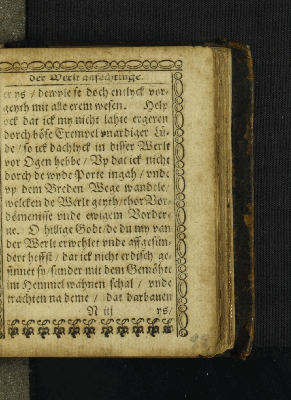 der Werlt anfechtinge.
er ys / dewyle se doch entlyck vor-
geyth mit alle erem wesen. Help
ock dat ick my nicht lahte ergeren
dorch böse Exempel vnardiger Lü-
de / so ick dachlyck in disser Werlt
vor Ogen hebbe / Vp dat ick nicht
dorch de wyde Porte ingah / vnde
vp dem Breden Wege wandele /
welcken de Werlt geyth / thor Vor-
dömenisse vnde ewigem Vorder-
ue. O hillige Godt / de du my van
der Werlt erwehlet vnde affgesün-
dert heffst / dat ick nicht erdisch ge-
sinnet sy / sunder mit dem Gemöhte
im Hemmel wahnen schal / vnde
trachten na deme / dat darbauen
N iij ys /